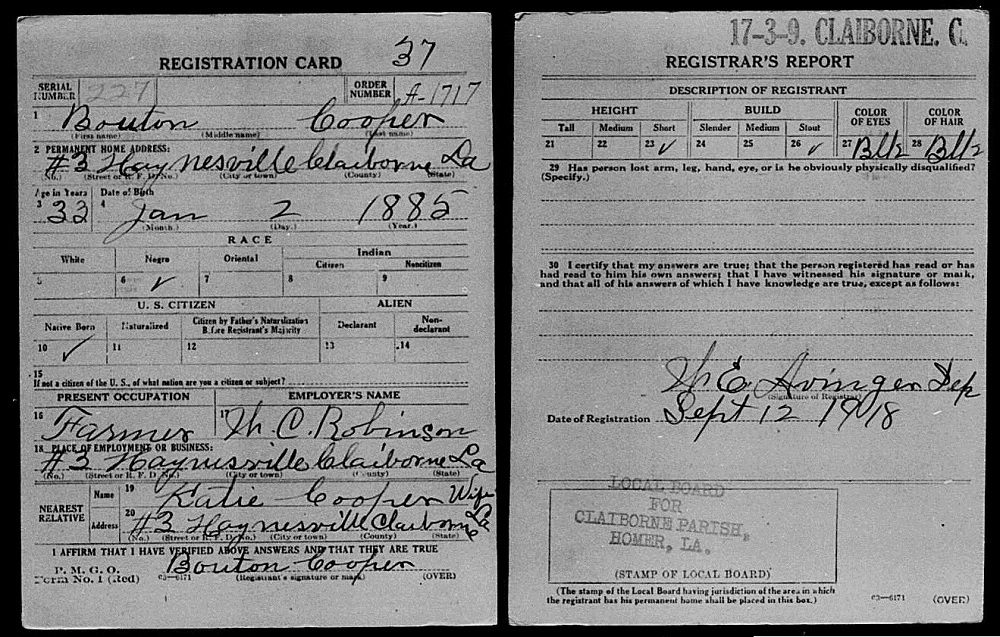 REGISTRATION CARD 37
SERIAL NUMBER 227 ORDER NUMBER A-1717
1 Bouton Cooper
(First name) (Middle name) (Last name)
2 PERMANENT HOME ADDRESS:
#3 Haynesville Claiborne La
(No.) (Street or R. F. D. No.) (City or town) (County) (State)
Age in Years Date of Birth
3 33 4 Jan 2 1885
(Month.) (Day.) (Year.)
RACE
White Negro Oriental Indian
Citizen Noncitizen
5 6 ✓ 7 8 9
U. S. CITIZEN ALIEN
Native Born Naturalized Citizen by Father's Naturalization Before Registrant's Majority Declarant Non-declarant
10 ✓ 11 12 13 14
15
If not a citizen of the U. S., of what nation are you a citizen or subject?
PRESENT OCCUPATION EMPLOYER'S NAME
16 Farmer 17 C. Robinson
18 PLACE OF EMPLOYMENT OR BUSINESS:
#3 Haynesville Claiborne La
(No.) (Street or R. F. D. No.) (City or town) (County) (State)
NEAREST RELATIVE
Name 19 Katie Cooper Wife
Address 20 #3 Haynesville Claiborne La
(No.) (Street or R. F. D. No.) (City or town) (County) (State)
I AFFIRM THAT I HAVE VERIFIED ABOVE ANSWERS AND THAT THEY ARE TRUE
P. M. G. O.
Form No. 1 (Red) c3—6171 Bouton Cooper
(Registrant's signature or mark) (OVER)
17-3-9. CLAIBORNE. C.
REGISTRAR'S REPORT
DESCRIPTION OF REGISTRANT
HEIGHT BUILD COLOR OF EYES COLOR OF HAIR
Tall Medium Short Slender Medium Stout
21 22 23 ✓ 24 25 26 ✓ 27 Blk 28 Blk
29 Has person lost arm, leg, hand, eye, or is he obviously physically disqualified?
(Specify.)
30 I certify that my answers are true; that the person registered has read or has
had read to him his own answers; that I have witnessed his signature or mark,
and that all of his answers of which I have knowledge are true, except as follows:
E. Avinger Dep
(Signature of Registrar)
Date of Registration Sept 12 1918
LOCAL BOARD
FOR
CLAIBORNE PARISH,
HOMER, LA.
(STAMP OF LOCAL BOARD)
(The stamp of the Local Board having jurisdiction of the area in which
the registrant has his permanent home shall be placed in this box.)
c3—6171 (OVER)